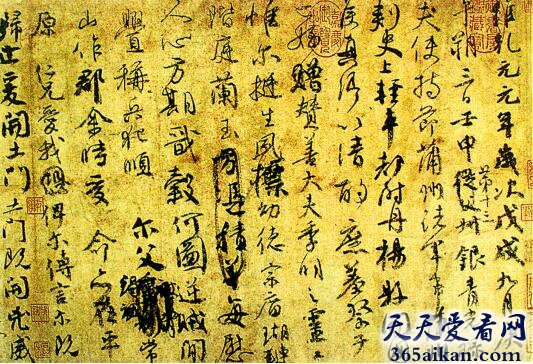 維乾元元年歲次戊戌九月
午朔三日壬申第十三從父銀青光
夫使持節蒲州諸軍事
刺史上輕車都尉丹楊縣
侯真卿以清酌庶羞祭于
姪贈贊善大夫季明之靈
惟爾挺生夙標幼德宗廟瑚璉
階庭蘭玉每慰
人心方期戩穀何圖逆賊閒
舋稱兵犯順爾父常
山作郡余時受命亦在平
原仁兄愛我俾爾傳言爾既
歸止爰開土門土門既開兇威
天天爱看网
365aikan.com